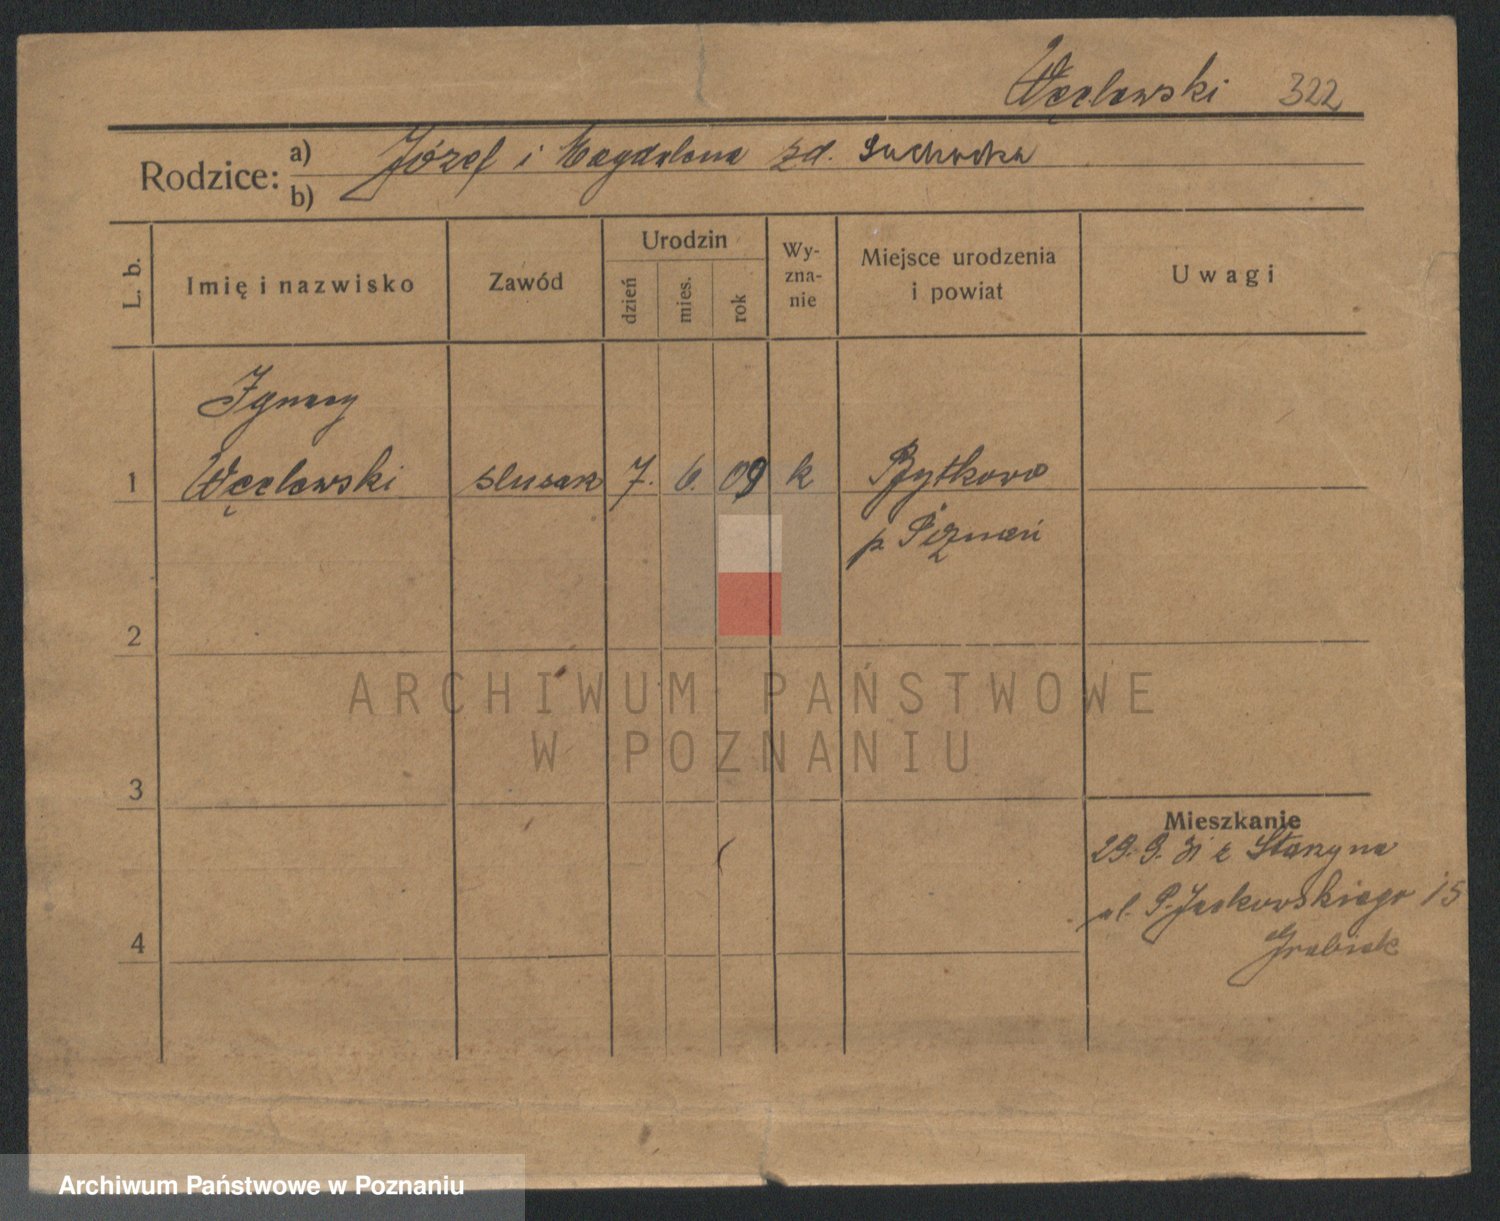 Węclewski 322
Rodzice: a) Józef i Magdalena zd. Suchocka
b)
L. b.
Imię i nazwisko
Zawód
Urodzin
dzień
mies.
rok
Wy-
zna-
nie
Miejsce urodzenia
i powiat
Uwagi
Ignacy
1 Węclewski ślusarz 7. 6. 09 k Bytkowo
p. Poznań
2
ARCHIWUM PAŃSTWOWE
W POZNANIU
3
Mieszkanie
29. 9. 31 z
ul. P. Jackowskiego 15
Grabiak
4
Archiwum Państwowe w Poznaniu